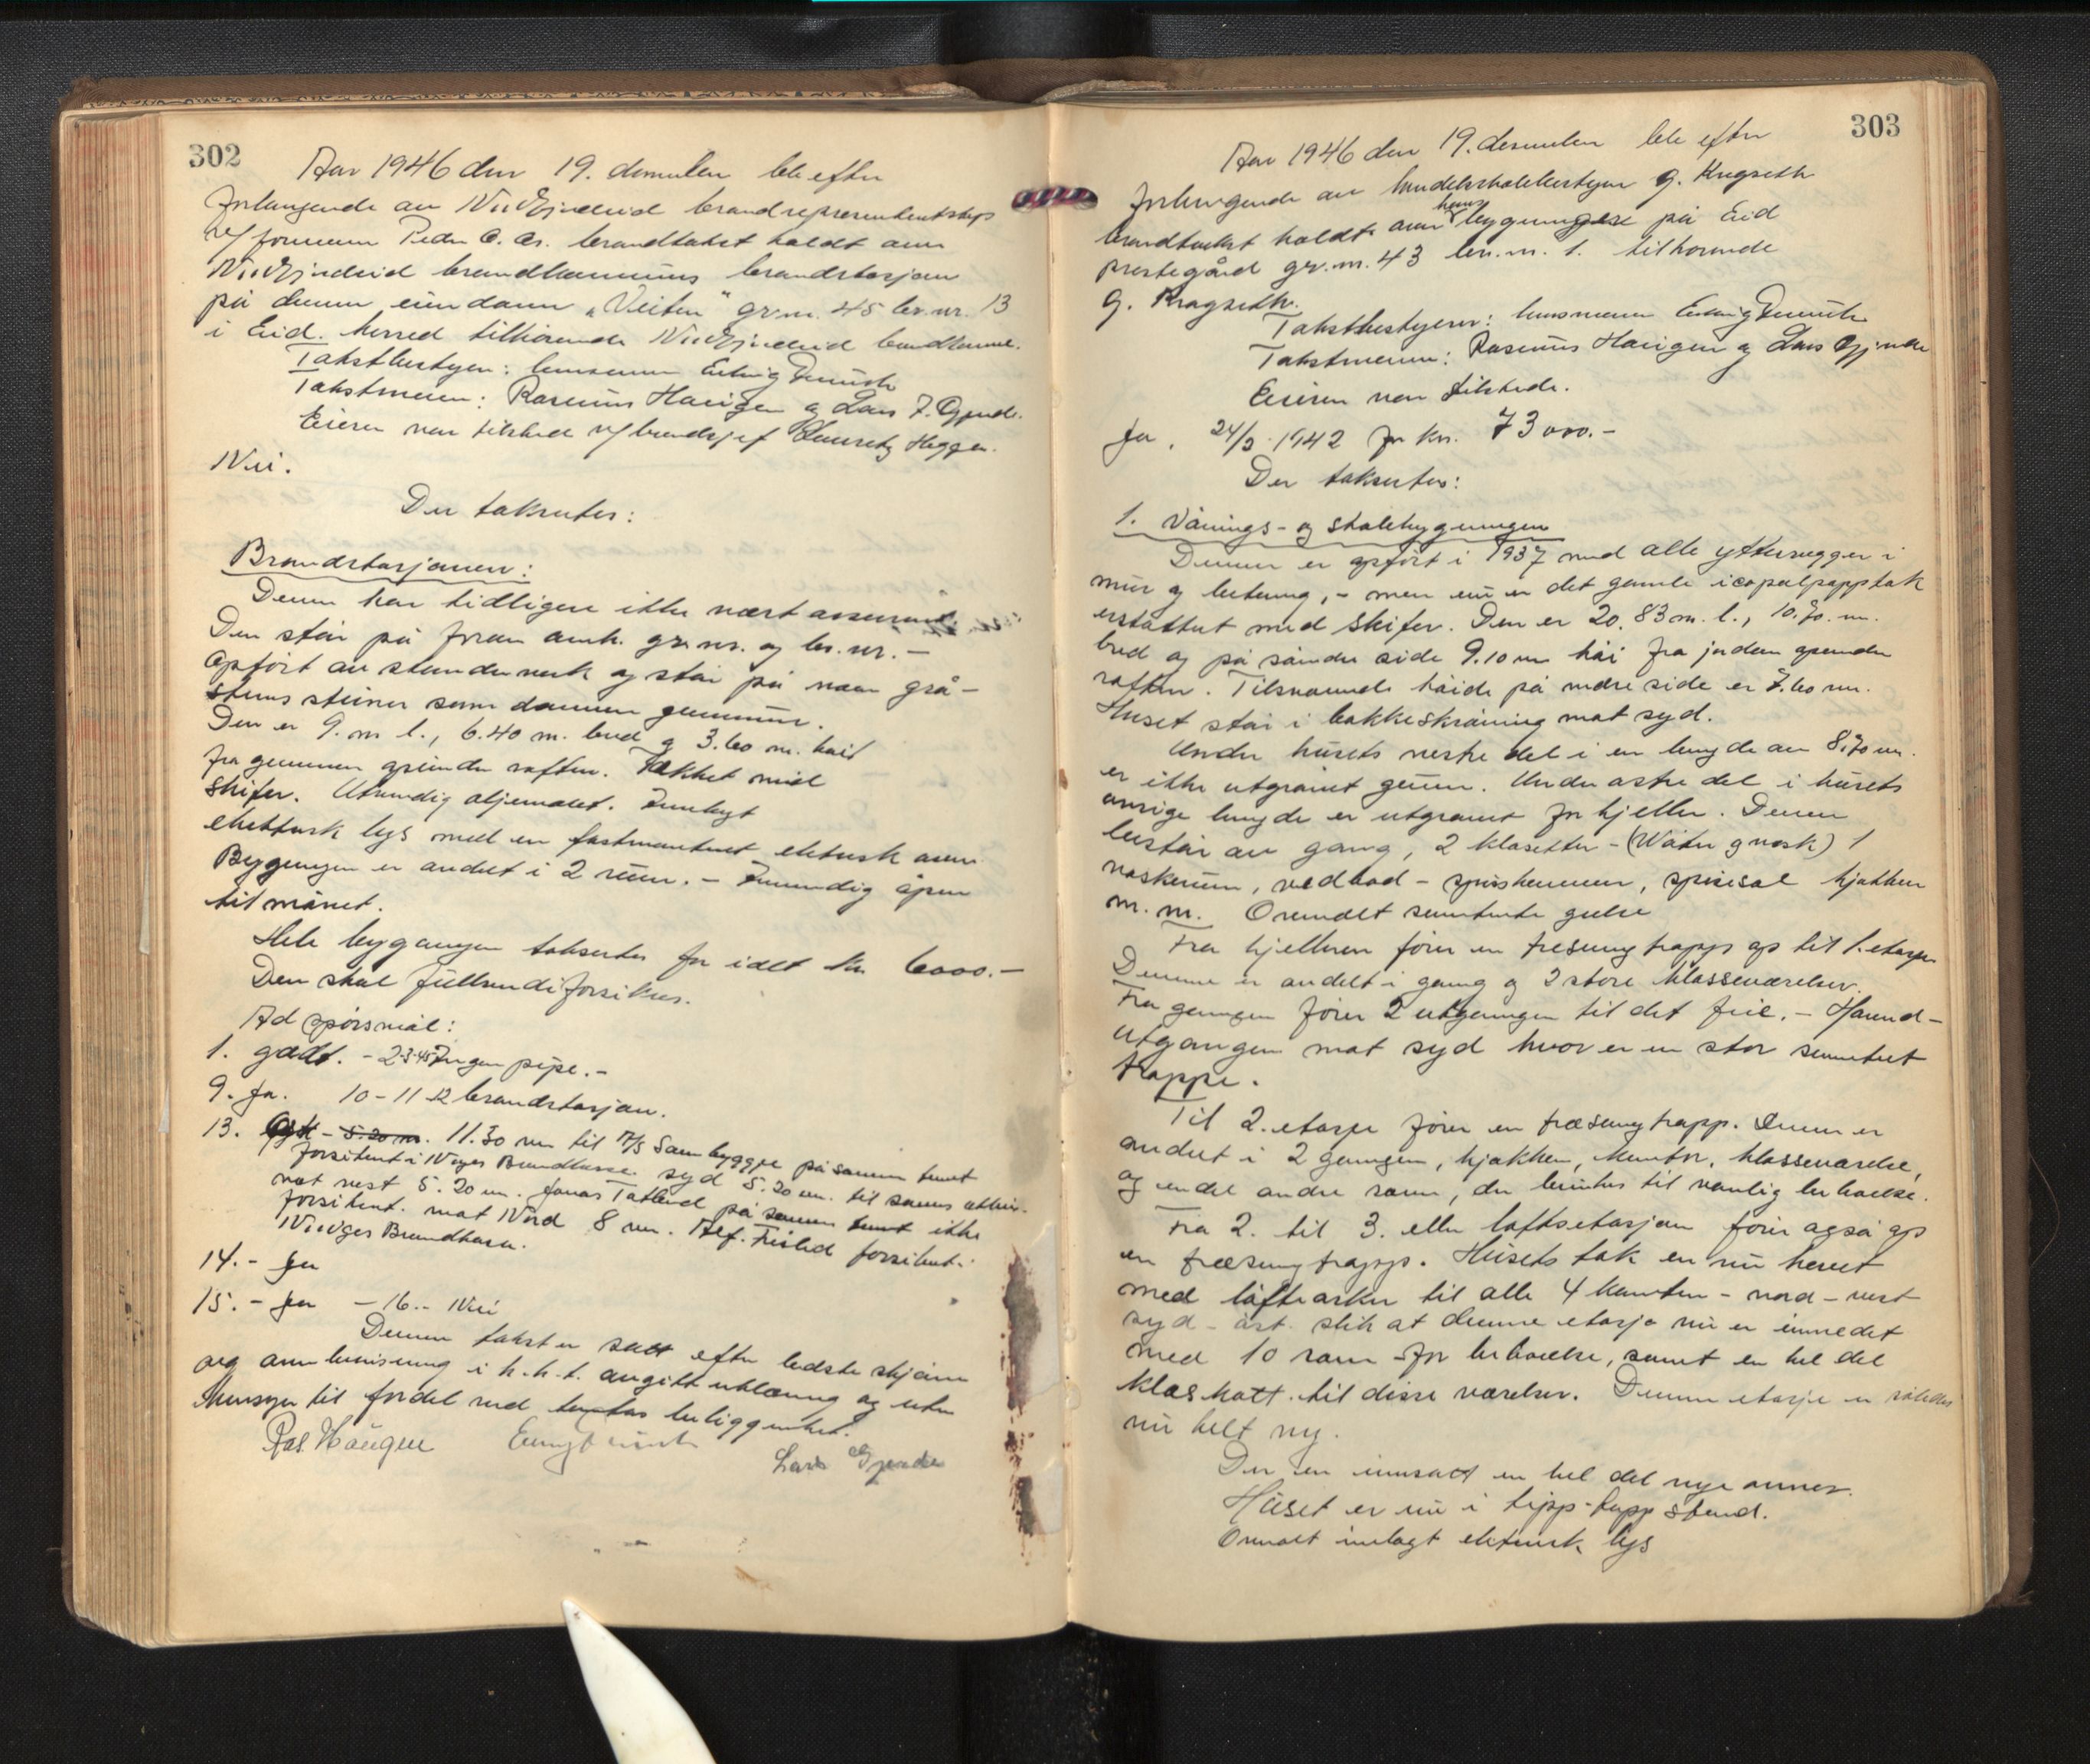 302
Aar 1946 den 19. desember ble efter
forlangende av Nordfjordeid brandrepresentantskap
v/ formann Peder O. Os. brandtakst holdt over
Nordfjordeid brandkommunes brandstasjon
på denne eiendom „Veiten" gr.nr. 45 br.nr. 13
i Eid herred tilhørende Nordfjordeid brandkomm.
Takstbestyrer: lensmann
Takstmenn: Rasmus Haugen og Lars J. Gjerde.
Eieren var tilstede v/ brandsjef Lauritz Heggen.
Nei.
Der takseres:
Brandstasjonen:
Denne har tidligere ikke vært assurert.
Den står på foran anh. gr.nr. og br.nr. –
Opført av stenderverk og står på noen grå-
stens steiner som danner grunnmur.
Den er 9. m l., 6.40 m. bred og 3.60 m. høi
fra grunnen ovenunder raften. Tækket med
skifer. Utvendig oljemalet. Innlagt
elektrisk lys med en fastmontert elektrisk ovn.
Bygningen er andelt i 2 rum. – Innvendig åpen
til mønet.
Hele bygningen takseres for i alt kr 6000.–
Den skal fullverdiforsikres.
Ad spørsmål:
1. godt. – 2-3-4-5 Ingen pipe. –
9. Ja. 10 – 11 - 12 brandstasjon.
13. Øst – 5.20 m. 11.30 m til A/S Sambygge på samme tomt
forsikret i Norges Brandkasse. syd 5.20 m. til samme
mot vest 5.20 m. Jonas Totland på samme tomt ikke
forsikret. mot Nord 8 m. Alf. forsikret.
Norges Brandkasse.
14. – Ja
15. – Ja – 16. – Nei
Denne takst er satt efter bedste skjønn
og overbevisning i h.h.t. avgitt erklæring og uten
hensyn til fordel ved beliggenhet.
Ras. Haugen
Lars Gjerde
303
Aar 1946 den 19. desember ble efter
forlangende av handelsskolebestyrer G. Kragseth
brandtakst holdt over hans bygninger på Eid
prestegård gr.nr. 43 br.nr. 1. tilhørende
G. Kragseth.
Takstbestyrer: lensmann
Takstmenn: Rasmus Haugen og Lars Gjerde
Eieren var tilstede.
Ja, 24/3 1942 for kr. 73000.–
Der takseres:
1. Vånings- og skolebygningen
Denne er opført i 1937 med alle yttervegger i
mur og betong, – men nu er det gamle icopalpapptak
erstattet med skifer. Den er 20.83 m. l., 10.70. m.
bred og på søndre side 9.10 m høi fra jorden ovenunder
raften. Tilsvarende høide på nordre side er 7.60 m.
Huset står i bakkeskråning mot syd.
Under husets vestre del i en lengde av 8.70 m.
er ikke utgravet grunn. Under østre del i husets
øvrige lengde er utgravet for kjeller. Denne
består av gang, 2 klosetter – (Water og vask) 1
vaskerum, vedbod – spiskammer, spisesal kjøkken
m.m. Overalt sementerte gulve
Fra kjelleren fører en tresvingtrapp op til 1. etasje
Denne er andelt i gang og 2 store klasseværelser.
Fra gangen fører 2 utganger til det frie. – Hoved-
utgangen mot syd hvor er en stor sementert
trappe.
Til 2. etasje fører en træsvingtrapp. Denne er
andelt i 2 ganger, kjøkken, kontor, klasseværelse,
og endel andre rom, der benyttes til vanlig beboelse.
Fra 2. til 3. eller loftsetasjen fører også op
en træsvingtrapp. Husets tak er nu hevet
med løftearker til alle 4 kanter – nord – vest
syd – øst. slik at denne etasje nu er innredet
med 10 rom for beboelse, samt en hel del
kleskott til disse værelser. Denne etasje er således
nu helt ny.
Der er innsatt en hel del nye ovner.
Huset er nu i tipp-topp stand.
Overalt innlagt elektrisk lys